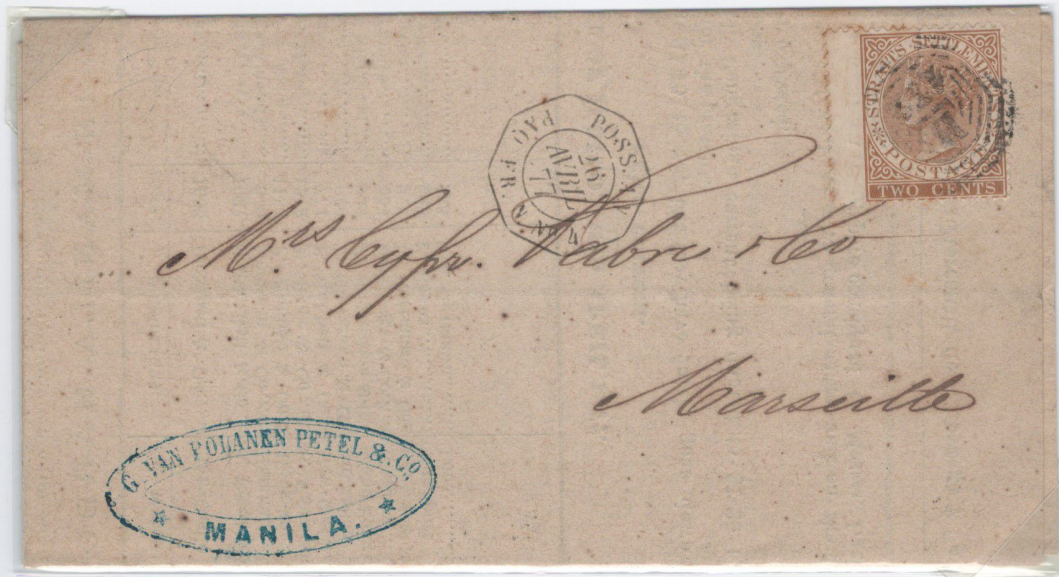 STRAITS SETTLEMENTS
POSTAGE
TWO CENTS
POSS. 
PAQ. FR. N. Nº 4
26
AVRIL
77
Mrs. Cypr. Fabre & Co
Marseille
G. VAN POLANEN PETEL & Co.
MANILA.